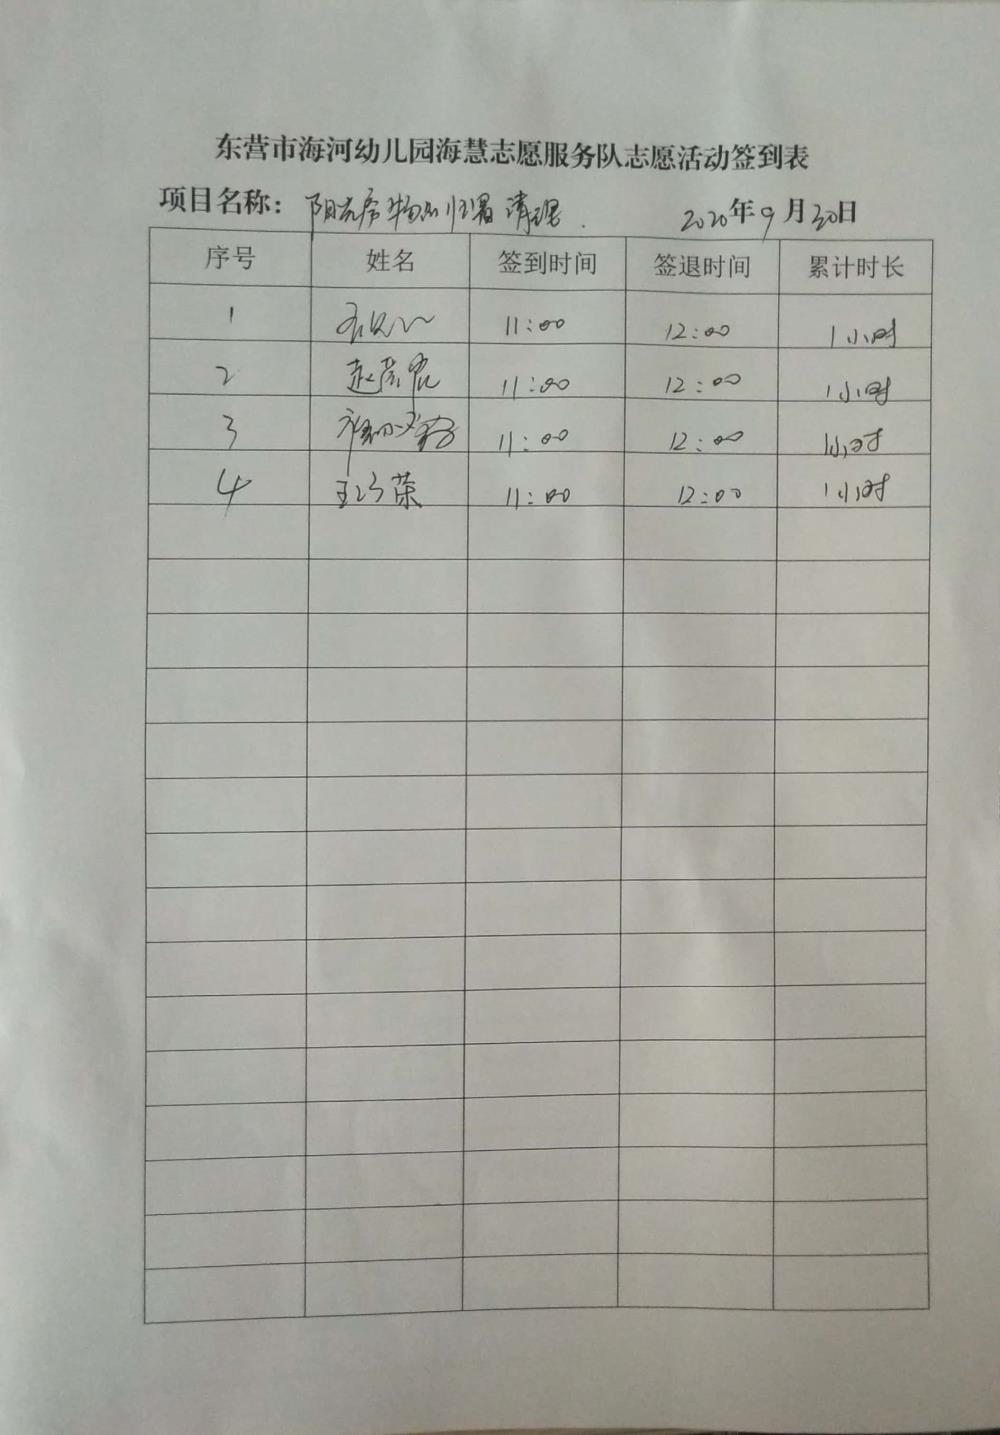 东营市海河幼儿园海慧志愿服务队志愿活动签到表
项目名称：阳光房物品归置清理 2020年9月30日
序号 姓名 签到时间 签退时间 累计时长
1 11:00 12:00 1小时
2 11:00 12:00 1小时
3 11:00 12:00 1小时
4 王巧荣 11:00 12:00 1小时